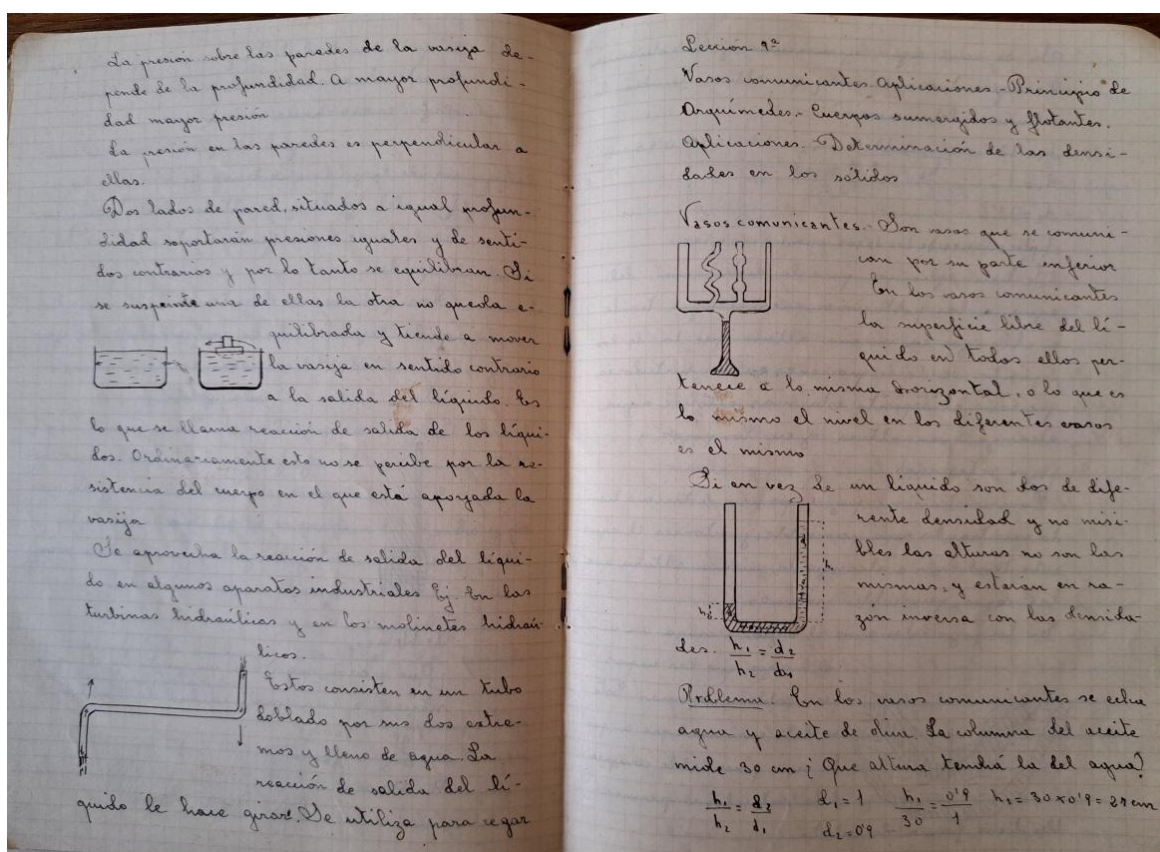 La presión sobre las paredes de la vasija de-
pende de la profundidad. A mayor profundi-
dad mayor presión
La presión en las paredes es perpendicular a
ellas.
Dos lados de pared, situados a igual profun-
didad soportarán presiones iguales y de senti-
dos contrarios y por lo tanto se equilibran. Si
se suspeinte una de ellas la otra no queda e-
quilibrada y tiende a mover
la vasija en sentido contrario
a la salida del líquido. Es
lo que se llama reacción de salida de los líqui-
dos. Ordinariamente esto no se percibe por la re-
sistencia del cuerpo en el que está apoyada la
vasija
Se aprovecha la reacción de salida del líqui-
do en algunos aparatos industriales Ej. En las
turbinas hidraúlicas y en los molinetes hidraú-
licos.
Estos consisten en un tubo
doblado por sus dos extre-
mos y lleno de agua. La
reacción de salida del lí-
quido le hace girar. Se utiliza para regar
Lección 9ª
Vasos comunicantes. Aplicaciones.- Principio de
Arquímedes.- Cuerpos sumergidos y flotantes.
Aplicaciones.- Determinación de las densi-
dades en los sólidos
Vasos comunicantes.- Son vasos que se comuni-
can por su parte inferior
En los vasos comunicantes
la superficie libre del lí-
quido en todos ellos per-
tenece a la misma horizontal, o lo que es
lo mismo el nivel en los diferentes vasos
es el mismo
Si en vez de un líquido son dos de dife-
rente densidad y no misi-
bles las alturas no son las
mismas, y estarán en ra-
zón inversa con las densida-
des. h₁/h₂ = d₂/d₁
Problema. En los vasos comunicantes se echa
agua y aceite de oliva. La columna del aceite
mide 30 cm ¿Que altura tendrá la del agua?
h₁/h₂ = d₂/d₁ d₁ = 1 h₁/30 = 0'9/1 h₁ = 30 × 0'9 = 27 cm
d₂ = 0'9